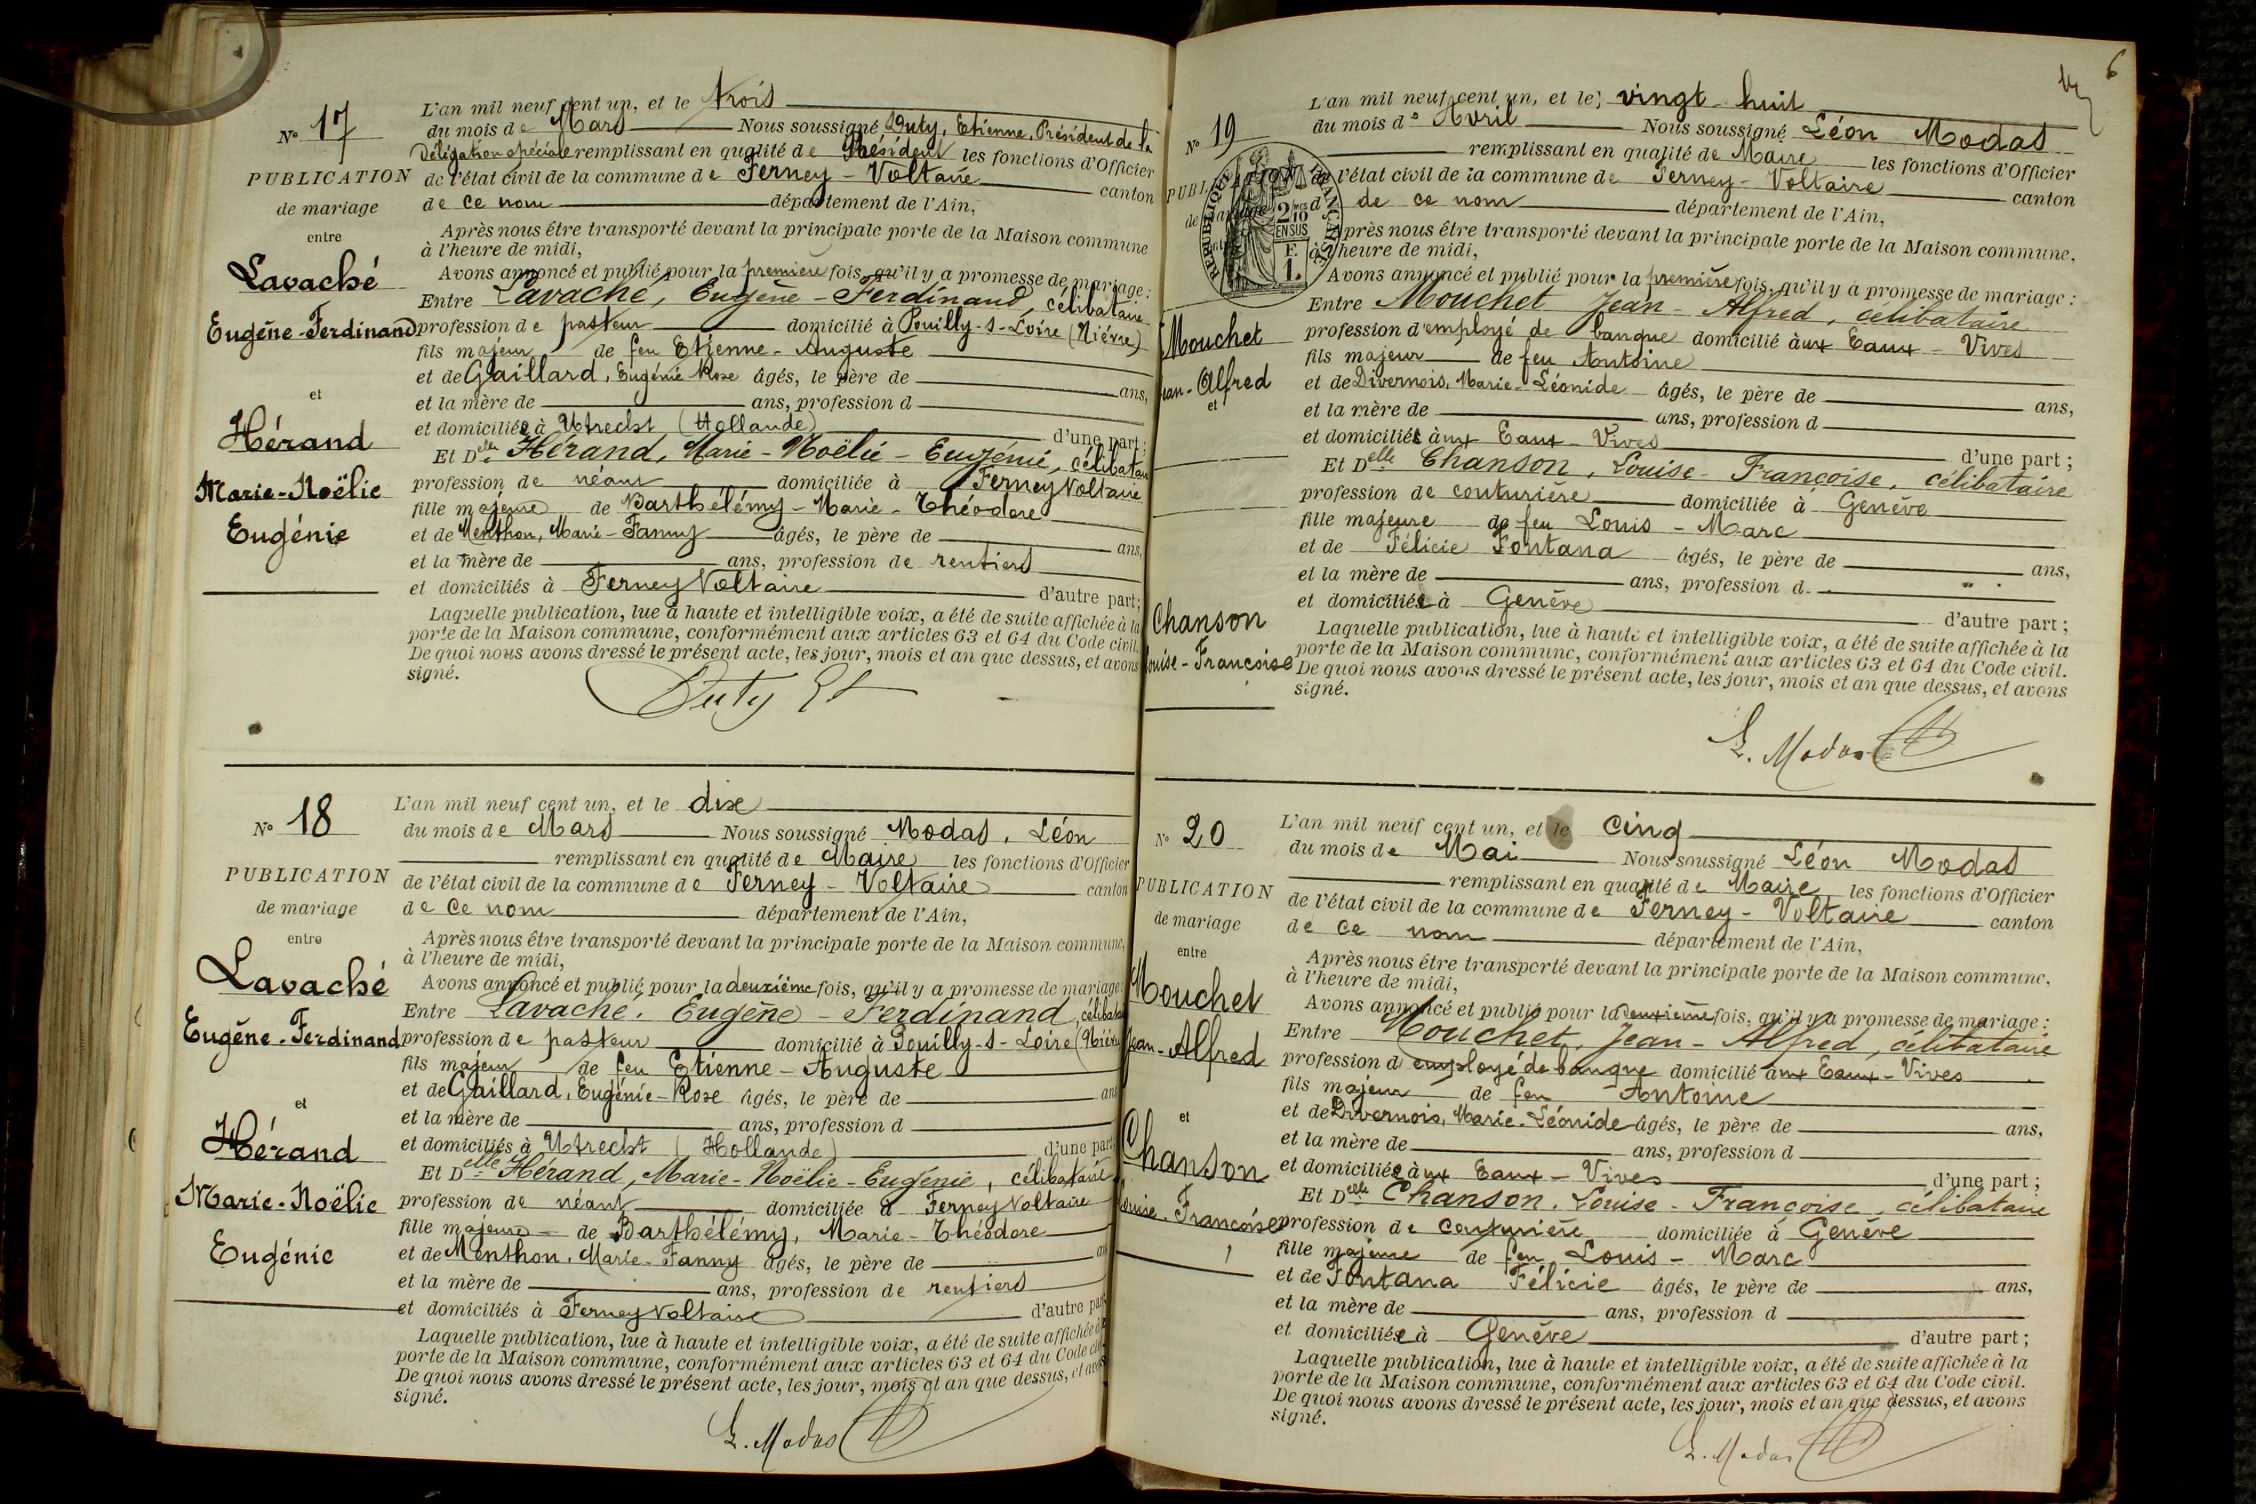 N° 17
PUBLICATION
de mariage
entre
Lavaché
Eugène-Ferdinand
et
Hérand
Marie-Noëlie
Eugénie
L'an mil neuf cent un, et le trois
du mois de Mars Nous soussigné Duty, Etienne, Président de la
Délégation spéciale remplissant en qualité de Président les fonctions d'Officier
de l'état civil de la commune de Ferney-Voltaire canton
de ce nom département de l'Ain,
Après nous être transporté devant la principale porte de la Maison commune
à l'heure de midi,
Avons annoncé et publié pour la première fois, qu'il y a promesse de mariage :
Entre Lavaché, Eugène-Ferdinand, célibataire
profession de pasteur domicilié à Pouilly-s-Loire (Nièvre)
fils majeur de feu Etienne-Auguste
et de Gaillard, Eugénie Rose âgés, le père de ans,
et la mère de ans, profession d
et domiciliée à Utrecht (Hollande) d'une part ;
Et Delle Hérand, Marie-Noëlie-Eugénie, célibataire
profession de néant domiciliée à Ferney Voltaire
fille majeure de Barthélémy-Marie-Théodore
et de Menthon, Marie-Fanny âgés, le père de ans,
et la mère de ans, profession de rentiers
et domiciliés à Ferney Voltaire d'autre part ;
Laquelle publication, lue à haute et intelligible voix, a été de suite affichée à la
porte de la Maison commune, conformément aux articles 63 et 64 du Code civil.
De quoi nous avons dressé le présent acte, les jour, mois et an que dessus, et avons
signé.
Duty Et
N° 18
PUBLICATION
de mariage
entre
Lavaché
Eugène-Ferdinand
et
Hérand
Marie-Noëlie
Eugénie
L'an mil neuf cent un, et le dix
du mois de Mars Nous soussigné Modas, Léon
remplissant en qualité de Maire les fonctions d'Officier
de l'état civil de la commune de Ferney-Voltaire canton
de ce nom département de l'Ain,
Après nous être transporté devant la principale porte de la Maison commune,
à l'heure de midi,
Avons annoncé et publié pour la deuxième fois, qu'il y a promesse de mariage
Entre Lavaché, Eugène-Ferdinand, céliba
profession de pasteur domicilié à Pouilly-s-Loire (Nièvre
fils majeur de feu Etienne-Auguste
et de Gaillard, Eugénie-Rose âgés, le père de an
et la mère de ans, profession d
et domiciliés à Utrecht (Hollande) d'une part
Et Delle Hérand, Marie-Noëlie-Eugénie, célibataire
profession de néant domiciliée à Ferney Voltaire
fille majeure de Barthélémy, Marie-Théodore
et de Menthon, Marie-Fanny âgés, le père de an
et la mère de ans, profession de rentiers
et domiciliés à Ferney Voltaire d'autre part
Laquelle publication, lue à haute et intelligible voix, a été de suite affichée à
porte de la Maison commune, conformément aux articles 63 et 64 du Code civ
De quoi nous avons dressé le présent acte, les jour, mois et an que dessus, et avons
signé.
L. Modas
6
N° 19
PUBLICATION
de mariage
RÉPUBLIQUE FRANÇAISE
2/10 EN SUS
F. 1.
Mouchet
Jean-Alfred
et
Chanson
Louise-Françoise
L'an mil neuf cent un, et le vingt-huit
du mois d'Avril Nous soussigné Léon Modas
remplissant en qualité de Maire les fonctions d'Officier
de l'état civil de la commune de Ferney-Voltaire canton
d de ce nom département de l'Ain,
Après nous être transporté devant la principale porte de la Maison commune,
à l'heure de midi,
Avons annoncé et publié pour la première fois, qu'il y a promesse de mariage :
Entre Mouchet Jean-Alfred, célibataire
profession d'employé de banque domicilié aux Eaux-Vives
fils majeur de feu Antoine
et de Divernois, Marie-Léonide âgés, le père de ans,
et la mère de ans, profession d
et domiciliée aux Eaux-Vives d'une part ;
Et Delle Chanson, Louise-Françoise, célibataire
profession de couturière domiciliée à Genève
fille majeure de feu Louis-Marc
et de Félicie Fontana âgés, le père de ans,
et la mère de ans, profession d
et domiciliée à Genève d'autre part ;
Laquelle publication, lue à haute et intelligible voix, a été de suite affichée à la
porte de la Maison commune, conformément aux articles 63 et 64 du Code civil.
De quoi nous avons dressé le présent acte, les jour, mois et an que dessus, et avons
signé.
L. Modas
N° 20
PUBLICATION
de mariage
entre
Mouchet
Jean-Alfred
et
Chanson
Louise-Françoise
L'an mil neuf cent un, et le cinq
du mois de Mai Nous soussigné Léon Modas
remplissant en qualité de Maire les fonctions d'Officier
de l'état civil de la commune de Ferney-Voltaire canton
de ce nom département de l'Ain,
Après nous être transporté devant la principale porte de la Maison commune,
à l'heure de midi,
Avons annoncé et publié pour la deuxième fois, qu'il y a promesse de mariage :
Entre Mouchet, Jean-Alfred, célibataire
profession d'employé de banque domicilié aux Eaux-Vives
fils majeur de feu Antoine
et de Divernois, Marie-Léonide âgés, le père de ans,
et la mère de ans, profession d
et domiciliée aux Eaux-Vives d'une part ;
Et Delle Chanson, Louise-Françoise, célibataire
profession de couturière domiciliée à Genève
fille majeure de feu Louis-Marc
et de Fontana Félicie âgés, le père de ans,
et la mère de ans, profession d
et domiciliée à Genève d'autre part ;
Laquelle publication, lue à haute et intelligible voix, a été de suite affichée à la
porte de la Maison commune, conformément aux articles 63 et 64 du Code civil.
De quoi nous avons dressé le présent acte, les jour, mois et an que dessus, et avons
signé.
L. Modas